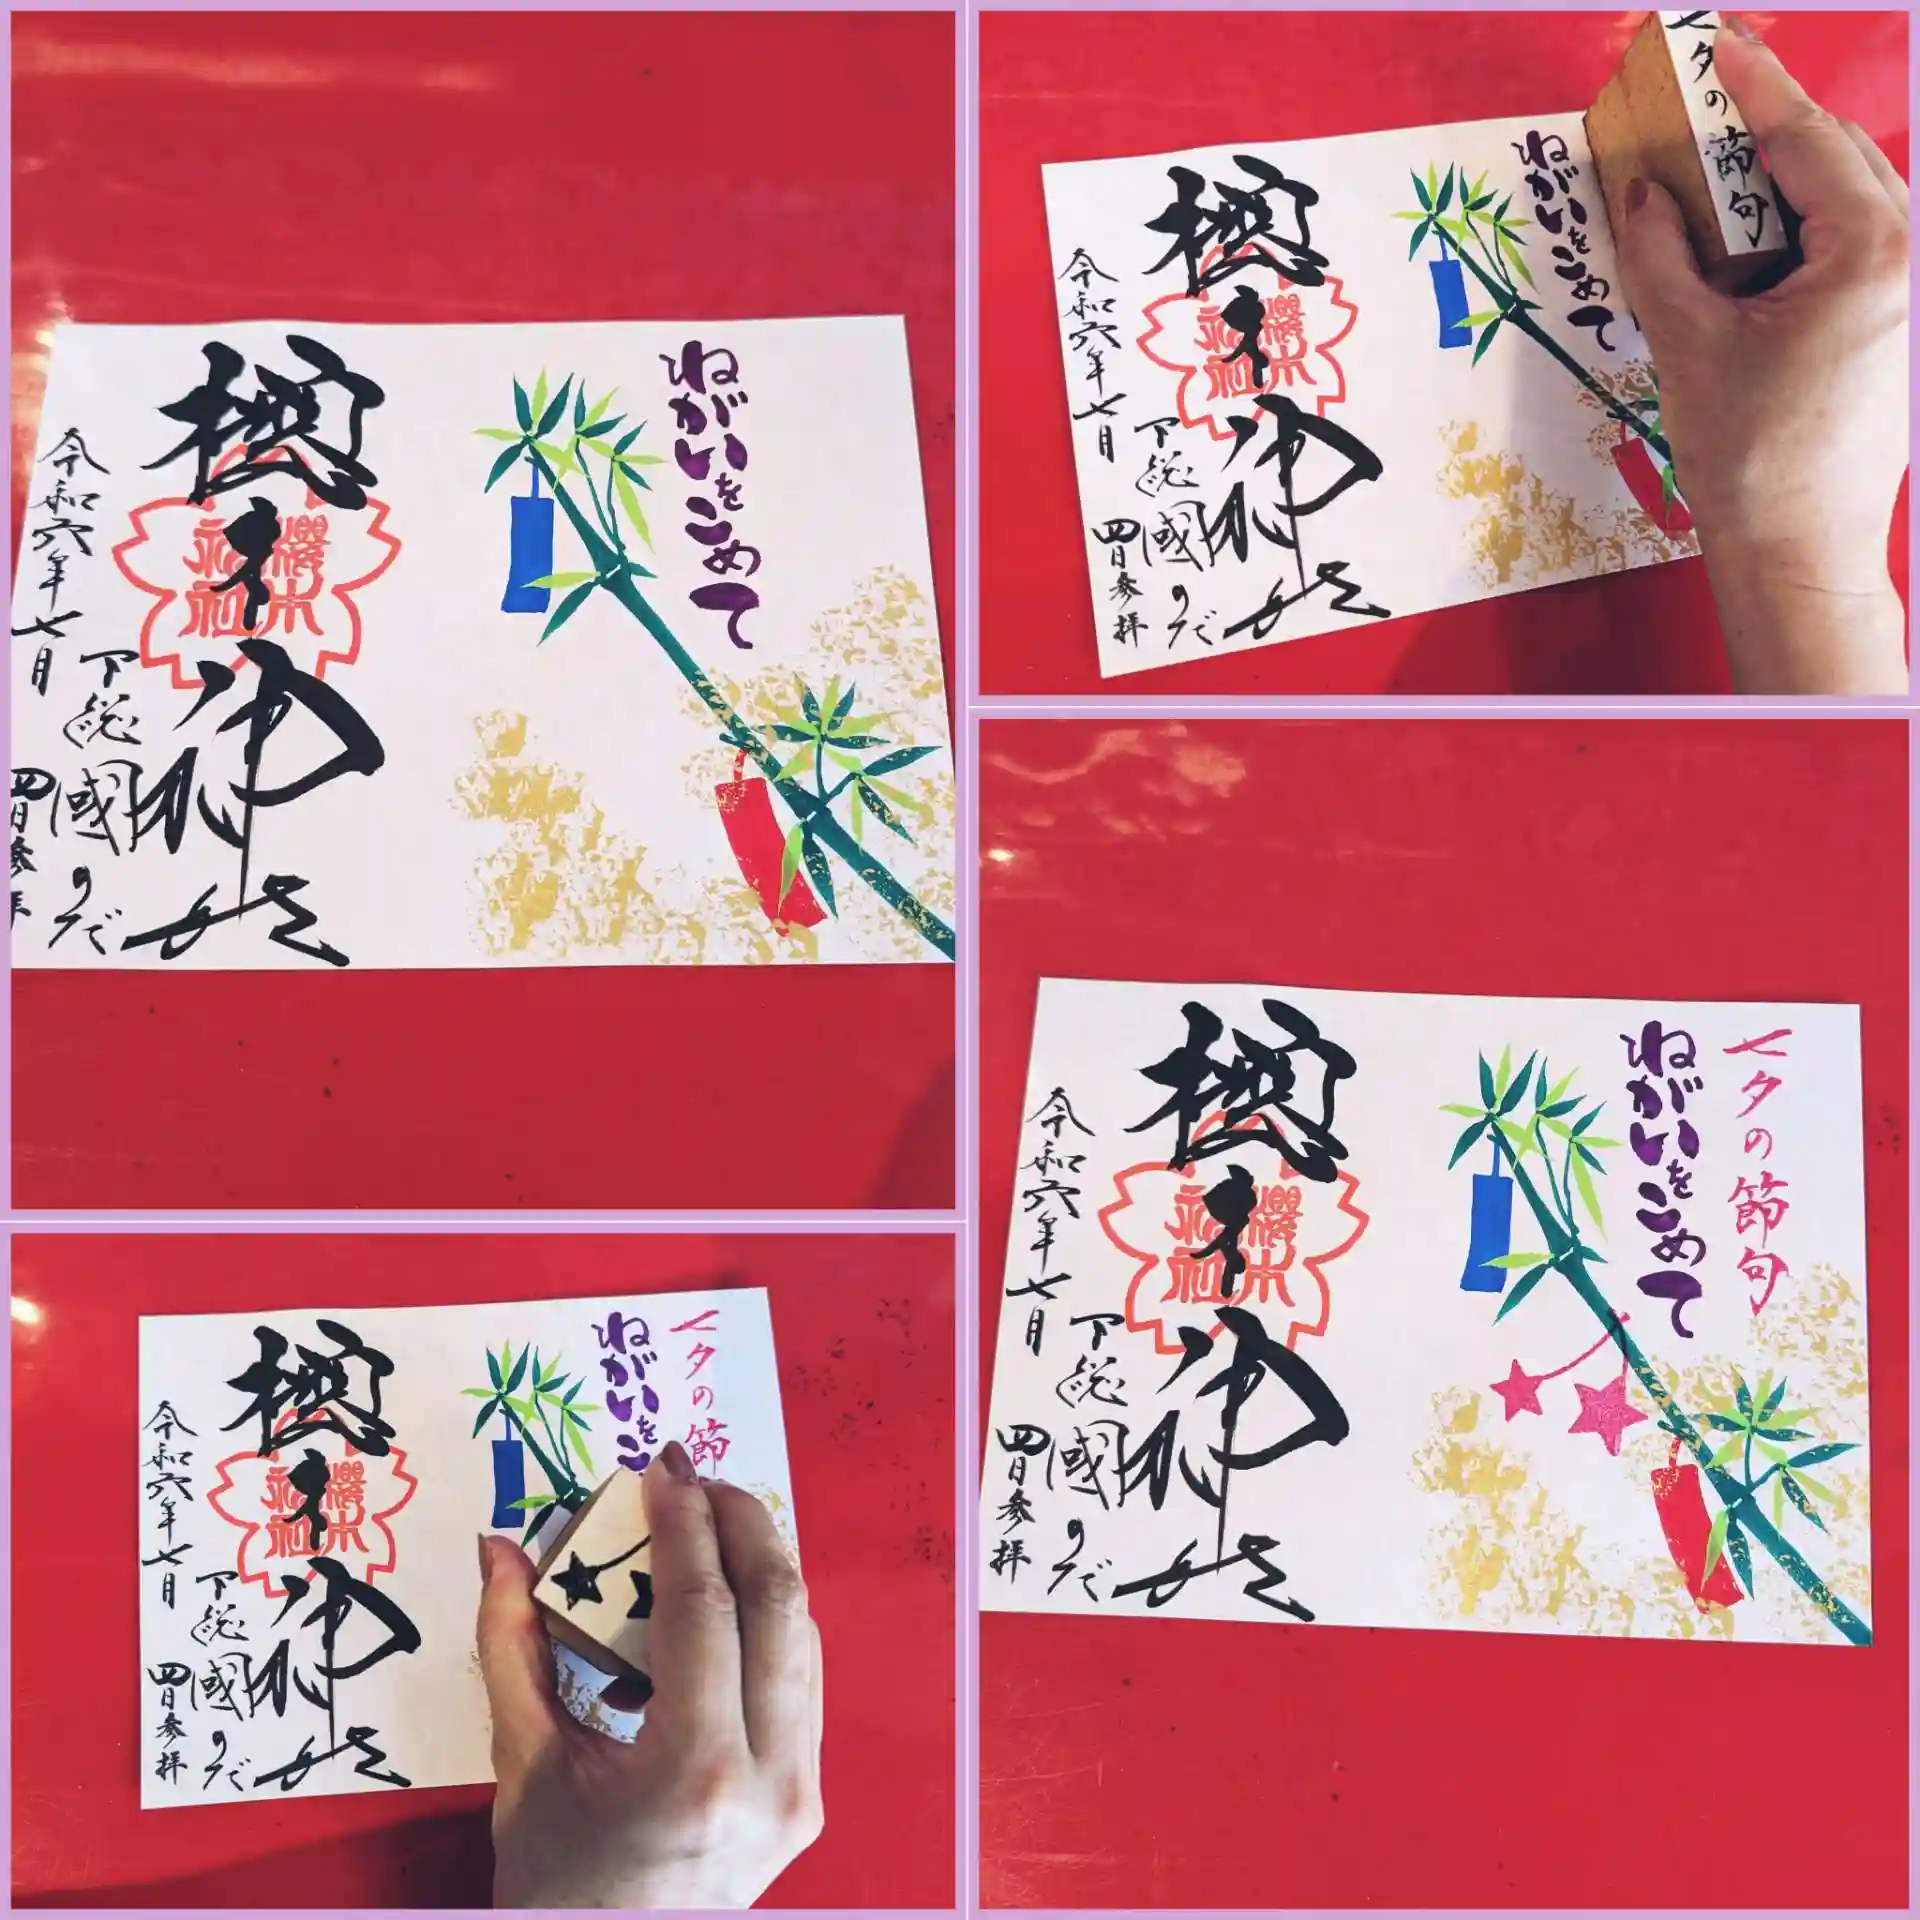 ねがいをこめて
櫻木神社
櫻木
神社
下総國のだ
令和六年七月
四日参拝
七夕の節句
ねがいをこめて
櫻木神社
櫻木
神社
下総國のだ
令和六年七月
四日参拝
七夕の節
ねがいをこ
櫻木神社
櫻木
神社
下総國のだ
令和六年七月
四日参拝
七夕の節句
ねがいをこめて
櫻木神社
櫻木
神社
下総國のだ
令和六年七月
四日参拝